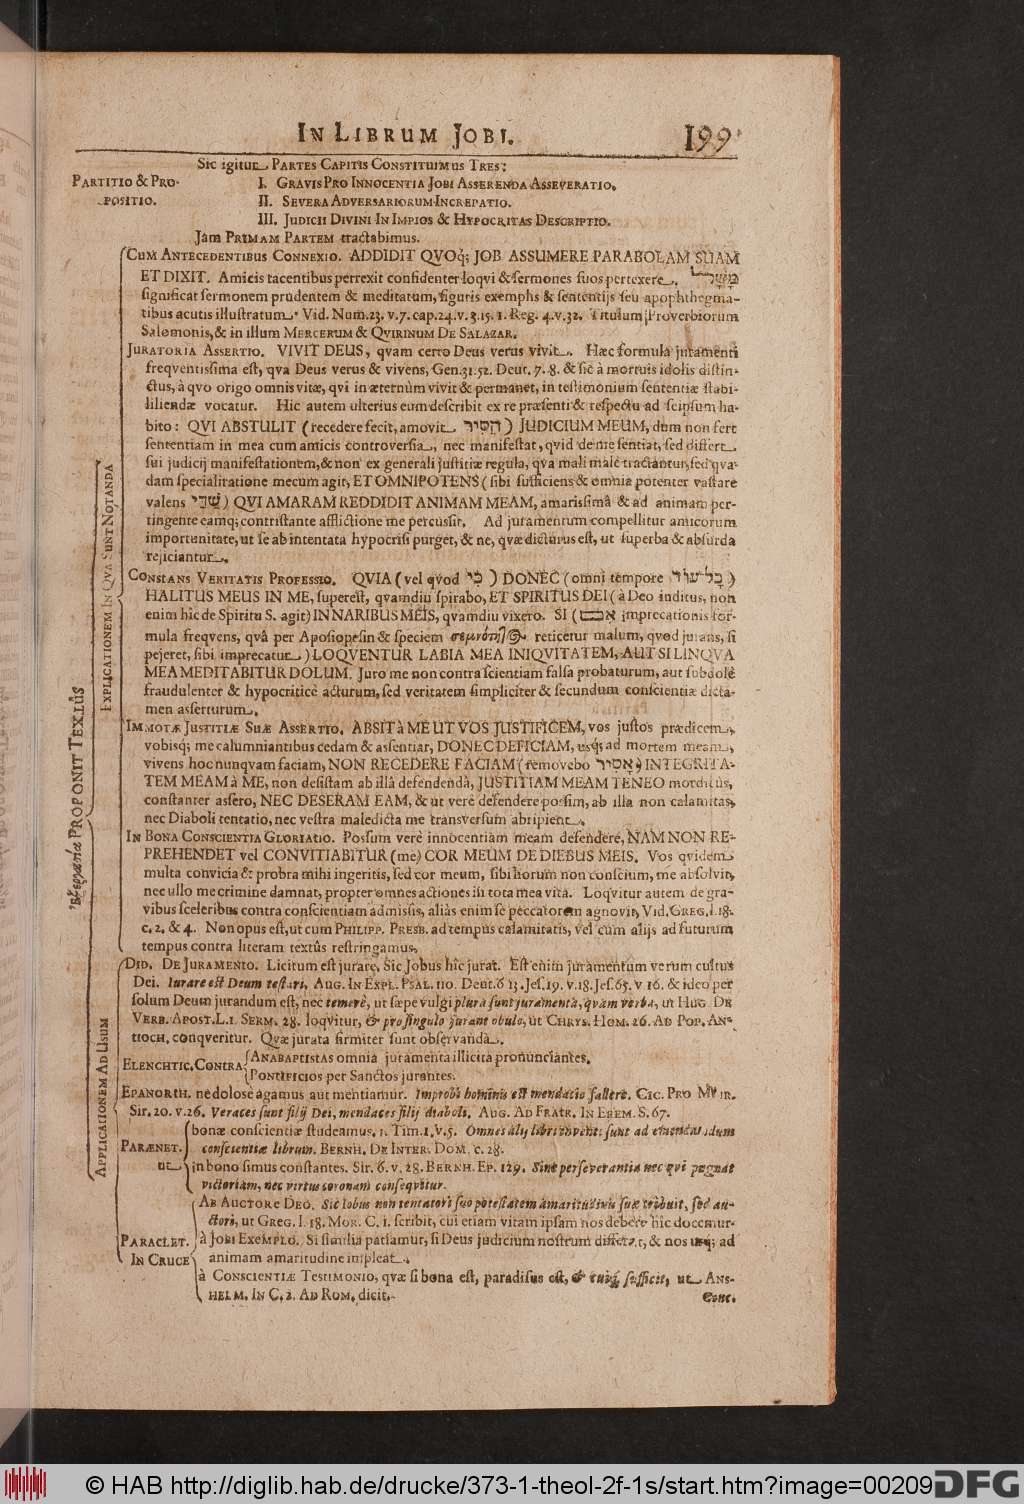 IN LIBRUM JOBI. 199
Sic igitur PARTES CAPITIS CONSTITUIMUS TRES:
PARTITIO & PRO-
POSITIO.
I. GRAVIS PRO INNOCENTIA JOBI ASSERENDA ASSEVERATIO.
II. SEVERA ADVERSARIORUM INCREPATIO.
III. JUDICII DIVINI IN IMPIOS & HYPOCRITAS DESCRIPTIO.
Jam PRIMAM PARTEM tractabimus.
CUM ANTECEDENTIBUS CONNEXIO. ADDIDIT QVOq; JOB ASSUMERE PARABOLAM SUAM
ET DIXIT. Amicis tacentibus perrexit confidenter loqvi & sermones suos pertexere. מָשָׁל
significat sermonem prudentem & meditatum, figuris exemplis & sententijs seu apophthegma-
tibus acutis illustratum. Vid. Num. 23. v. 7. cap. 24. v. 3. 15. 1. Reg. 4. v. 32. Titulum Proverbiorum
Salomonis, & in illum MERCERUM & QVIRINUM DE SALAZAR.
JURATORIA ASSERTIO. VIVIT DEUS, qvam certo Deus verus vivit. Hæc formula juramenti
freqventissima est, qva Deus verus & vivens, Gen. 31. 52. Deut. 7. 8. & sic à mortuis idolis distin-
ctus, à qvo origo omnis vitæ, qvi in æternùm vivit & permanet, in testimonium sententiæ stabi-
liliendæ vocatur. Hic autem ulterius eum describit ex re præsenti & respectu ad seipsum ha-
bito: QVI ABSTULIT (recedere fecit, amovit הֵסִיר) JUDICIUM MEUM, dum non fert
sententiam in mea cum amicis controversia, nec manifestat, qvid de me sentiat, sed differt
sui judicij manifestationem, & non ex generali justitiæ regula, qva mali malè tractantur, sed qva-
dam speciali ratione mecum agit, ET OMNIPOTENS (sibi sufficiens & omnia potenter vastare
valens שַׁדַּי) QVI AMARAM REDDIDIT ANIMAM MEAM, amarissimâ & ad animam per-
tingente eamq; contristante afflictione me percussit. Ad juramentum compellitur amicorum
importunitate, ut se ab intentata hypocrisi purget, & ne, qvæ dicturus est, ut superba & absurda
rejiciantur.
CONSTANS VERITATIS PROFESSIO. QVIA (vel qvod כִּי) DONEC (omni tempore כָּל עוֹד)
HALITUS MEUS IN ME, superest, qvamdiu spirabo, ET SPIRITUS DEI (à Deo inditus, non
enim hîc de Spiritu S. agit) IN NARIBUS MEIS, qvamdiu vixero. SI (אם imprecationis for-
mula freqvens, qvâ per Aposiopesin & speciem reticetur malum, qvod jurans, si
pejeret, sibi imprecatur) LOQVENTUR LABIA MEA INIQVITATEM, AUT SI LINQVA
MEA MEDITABITUR DOLUM. Juro me non contra scientiam falsa probaturum, aut subdolè
fraudulenter & hypocriticè acturum, sed veritatem simpliciter & secundum conscientiæ dicta-
men asserturum.
IMMOTÆ JUSTITIÆ SUÆ ASSERTIO. ABSIT à ME UT VOS JUSTIFICEM, vos justos prædicem,
vobisq; me calumniantibus cedam & assentiar, DONEC DEFICIAM, usq; ad mortem meam,
vivens hoc nunqvam faciam, NON RECEDERE FACIAM (removebo אָסִיר) INTEGRITA-
TEM MEAM à ME, non desistam ab illâ defendendâ, JUSTITIAM MEAM TENEO mordicùs,
constanter assero, NEC DESERAM EAM, & ut verè defendere possim, ab illa non calamitas,
nec Diaboli tentatio, nec vestra maledicta me transversum abripient.
IN BONA CONSCIENTIA GLORIATIO. Possum verè innocentiam meam defendere, NAM NON RE-
PREHENDET vel CONVITIABITUR (me) COR MEUM DE DIEBUS MEIS. Vos qvidem
multa convicia & probra mihi ingeritis, sed cor meum, sibi horum non conscium, me absolvit,
nec ullo me crimine damnat, propter omnes actiones in tota mea vita. Loqvitur autem de gra-
vibus sceleribus contra conscientiam admissis, aliàs enim se peccatorem agnovit, Vid. GREG. l. 18.
c. 2. & 4. Non opus est, ut cum PHILIPP. PRESB. ad tempus calamitatis, vel cum alijs ad futurum
tempus contra literam textûs restringamus.
EXPLICATIONEM IN QVA SUNT NOTANDA
PROPONIT TEXTÛS
APPLICATIONEM AD USUM
DID. DE JURAMENTO. Licitum est jurare, Sic Jobus hîc jurat. Est enim juramentum verum cultus
Dei. Jurare est Deum testari, AUG. IN EXPL. PSAL. 110. Deut. 6 13. Jes. 19. v. 18. Jes. 65. v 16. & ideo per
solum Deum jurandum est, nec temerè, ut sæpe vulgi plura sunt juramenta, qvàm verba, ut HUG. DE
VERB. APOST. L. 1. SERM. 28. loqvitur, & pro singulo jurant obulo, ut CHRYS. HOM. 26. AD POP. AN-
TIOCH. conqveritur. Qvæ jurata firmiter sunt observanda.
ELENCHTIC. CONTRA
ANABAPTISTAS omnia juramenta illicita pronunciantes.
PONTIFICIOS per Sanctos jurantes.
EPANORTH. ne dolosè agamus aut mentiamur. Improbi hominis est mendacio fallere. CIC. PRO MUR.
Sir. 20. v. 26. Veraces sunt filij Dei, mendaces filij diaboli. AUG. AD FRATR. IN EREM. S. 67.
PARÆNET.
ut
bonæ conscientiæ studeamus. 1. Tim. 1. v. 5. Omnes alij libri inventi sunt ad emendandum
conscientiæ librum. BERNH. DE INTER. DOM. c. 28.
in bono simus constantes. Sir. 6. v. 28. BERNH. EP. 129. Sine perseverantia nec qvi pugnat
victoriam, nec virtus coronam conseqvitur.
PARACLET.
IN CRUCE
AB AUCTORE DEO. Sic Iobus non tentatori suo potestatem amaritudinis suæ tribuit, sed au-
ctori, ut GREG. l. 18. MOR. C. 1. scribit, cui etiam vitam ipsam nos debere hîc docemur.
à JOBI EXEMPLO. Si similia patiamur, si Deus judicium nostrum differat, & nos usq; ad
animam amaritudine impleat.
à CONSCIENTIÆ TESTIMONIO, qvæ si bona est, paradisus est, & sufficit, ut ANS-
HELM. IN C. 2. AD ROM. dicit.
Conc.
© HAB http://diglib.hab.de/drucke/373-1-theol-2f-1s/start.htm?image=00209 DFG